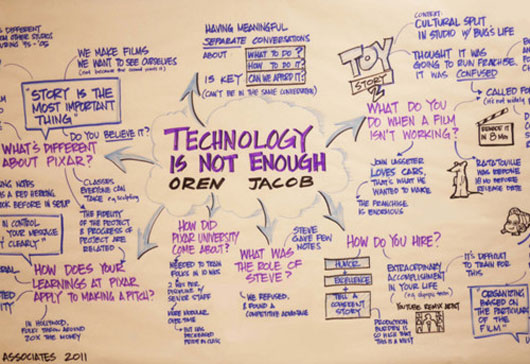 IS DIFFERENT
FROM OTHER STUDIOS
DURING 95-'05
WE MAKE FILMS
WE WANT TO SEE OURSELVES
"STORY IS THE
MOST IMPORTANT
THING"
DO YOU BELIEVE IT?
WHAT'S DIFFERENT
ABOUT PIXAR?
CLASSES
EVERYONE CAN
TAKE eg. sculpting
NOTES
A RED HERRING
LOOK BEFORE IN SETUP
THE FIDELITY
OF THE PROJECT &
PROGRESS OF
PROJECT ARE
RELATED
IN CONTROL
YOUR MESSAGE
CLEARLY"
HOW DOES YOUR
LEARNINGS AT PIXAR
APPLY TO MAKING A PITCH?
IN HOLLYWOOD,
AROUND
20X THE MONEY
ASSOCIATES 2011
HAVING MEANINGFUL
SEPARATE CONVERSATIONS
ABOUT
WHAT TO DO?
HOW TO DO IT?
CAN WE AFFORD IT?
IS KEY
(CAN'T BE IN THE SAME CONVERSATION)
TECHNOLOGY
IS NOT ENOUGH
OREN JACOB
HOW DID
PIXAR UNIVERSITY
COME ABOUT?
NEEDED TO TRAIN
FOLKS IN 10 WKS
2 WKS PER
DISCIPLINE W/
SENIOR STAFF
MORE MODULAR
OVER TIME
BUT HAS
DECREASED
WHAT WAS
THE ROLE OF
STEVE?
STEVE
GAVE FEW
NOTES
WE REFUSED,
& FOUND A
COMPETITIVE ADVANTAGE
TOY
STORY
2
CONTEXT:
CULTURAL SPLIT
IN STUDIO W/ BUG'S LIFE
THOUGHT IT WAS
GOING TO RUN FRANCHISE,
IT WAS CONFUSED
CALLED FO
REMADE IT IN
8 MIN
WHAT DO YOU
DO WHEN A FILM
ISN'T WORKING?
JOHN LASSETER
LOVES CARS,
THAT'S WHAT HE
WANTED TO MAKE
THE FRANCHISE
IS ENORMOUS
RATATOUILLE
WAS REDONE
18 MO BEFORE
RELEASE DATE
HOW DO YOU HIRE?
HUMOR
+
EXCELLENCE
+
TELL A
COHERENT STORY
EXTRAORDINARY
ACCOMPLISHMENT
IN YOUR LIFE
YOUTUBE REMIX NIGHT
PRODUCTION
BURDEN IS
SO HIGH THAT
THIS IS A MUST
IT'S DIFFICULT
TO TRAIN FOR
THIS
"ORGANIZING
BASED ON
THE PARTICULARS
OF THE
FILM"